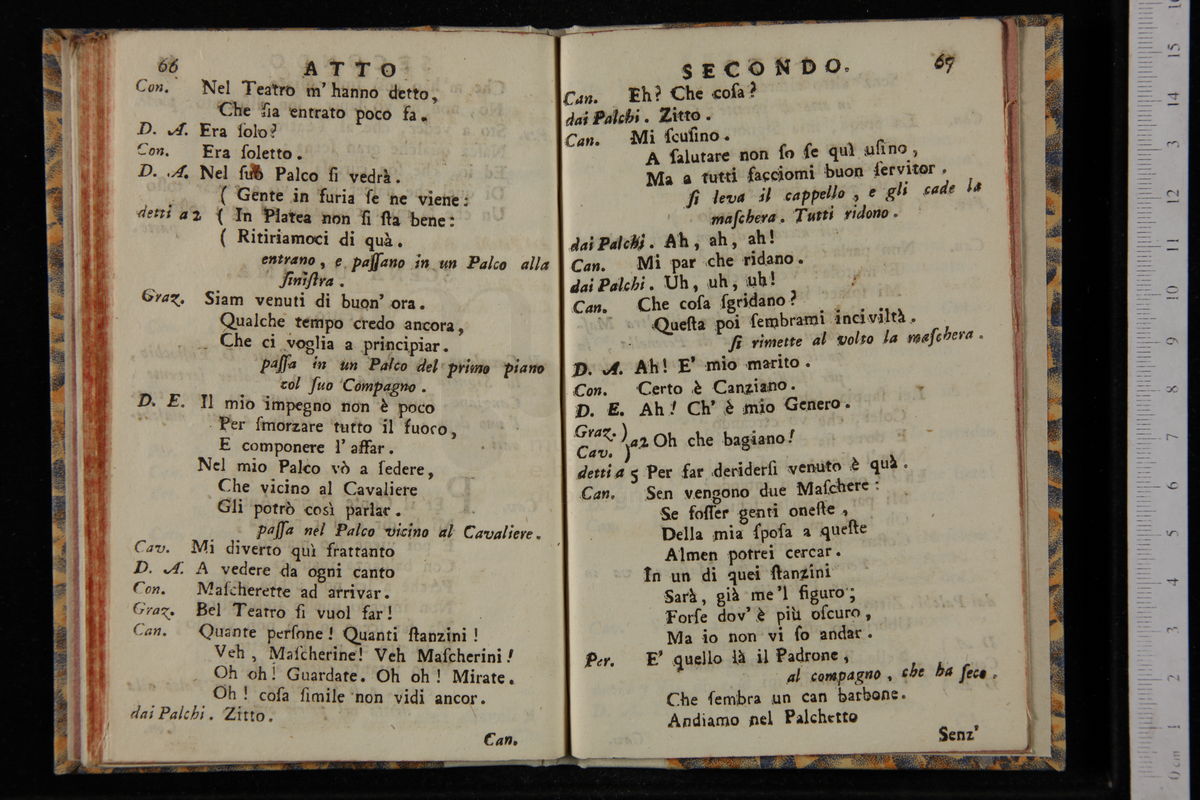 66
ATTO
Con. Nel Teatro m' hanno detto,
Che ſia entrato poco fa.
D. A. Era ſolo?
Con. Era ſoletto.
D. A. Nel ſuo Palco ſi vedrà.
( Gente in furia ſe ne viene:
detti a 2 ( In Platea non ſi ſta bene:
( Ritiriamoci di quà.
entrano, e paſſano in un Palco alla
ſiniſtra.
Graz. Siam venuti di buon' ora.
Qualche tempo credo ancora,
Che ci voglia a principiar.
paſſa in un Palco del primo piano
col ſuo Compagno.
D. E. Il mio impegno non è poco
Per ſmorzare tutto il fuoco,
E componere l' affar.
Nel mio Palco vò a ſedere,
Che vicino al Cavaliere
Gli potrò così parlar.
paſſa nel Palco vicino al Cavaliere.
Cav. Mi diverto quì frattanto
D. A. A vedere da ogni canto
Con. Maſcherette ad arrivar.
Graz. Bel Teatro ſi vuol far!
Can. Quante perſone! Quanti ſtanzini!
Veh, Maſcherine! Veh Maſcherini!
Oh oh! Guardate. Oh oh! Mirate.
Oh! coſa ſimile non vidi ancor.
dai Palchi. Zitto.
Can.
SECONDO.
67
Can. Eh? Che coſa?
dai Palchi. Zitto.
Can. Mi ſcuſino.
A ſalutare non ſo ſe quì uſino,
Ma a tutti facciomi buon ſervitor.
ſi leva il cappello, e gli cade la
maſchera. Tutti ridono.
dai Palchi. Ah, ah, ah!
Can. Mi par che ridano.
dai Palchi. Uh, uh, uh!
Can. Che coſa ſgridano?
Queſta poi ſembrami inciviltà.
ſi rimette al volto la maſchera.
D. A. Ah! E' mio marito.
Con. Certo è Canziano.
D. E. Ah! Ch' è mio Genero.
Graz. )
a2 Oh che bagiano!
Cav. )
detti a 5 Per far deriderſi venuto è quà.
Can. Sen vengono due Maſchere:
Se foſſer genti oneſte,
Della mia ſpoſa a queſte
Almen potrei cercar.
In un di quei ſtanzini
Sarà, già me'l figuro;
Forſe dov' è più oſcuro,
Ma io non vi ſo andar.
Per. E' quello là il Padrone,
al compagno, che ha ſeco.
Che ſembra un can barbone.
Andiamo nel Palchetto
Senz'